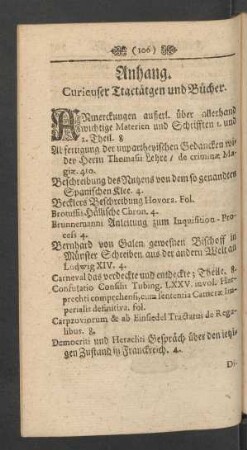 (106)
Anhang.
Curieuser Ttactätgen und Bücher.
ANmerckungen außerl. über allerhand
wichtige Materien und Schrifften 1. und
2. Theil. 8
Abfertigung der unpartheyischen Gedancken wi-
der Herrn Thomasii Lehre / de crimine Ma-
giæ. 4to.
Beschreibung des Nutzens von dem so genandten
Spanischen Klee. 4.
Becklers Beschreibung Hovora. Fol.
Brotuffii Hällische Chron. 4.
Brunnemanni Anleitung zum Inquisition-Pro-
ceß 4.
Bernhard von Galen gewesnen Bischoff in
Münster Schreiben aus der andern Welt an
Ludwig XIV. 4.
Carneval das verdeckte und entdeckte; Theile. 8.
Confutatio Consilii Tubing. LXXV. invol. Har-
prechti comprehensi, cum sententia Cameræ Im-
perialis definitiva. fol.
Carpzoviorum & ab Einsiedel Tractatus de Rega-
libus. 8.
Democriti und Heracliti Gespräch über den jetzi-
gen Zustand in Franckreich. 4.
Di-